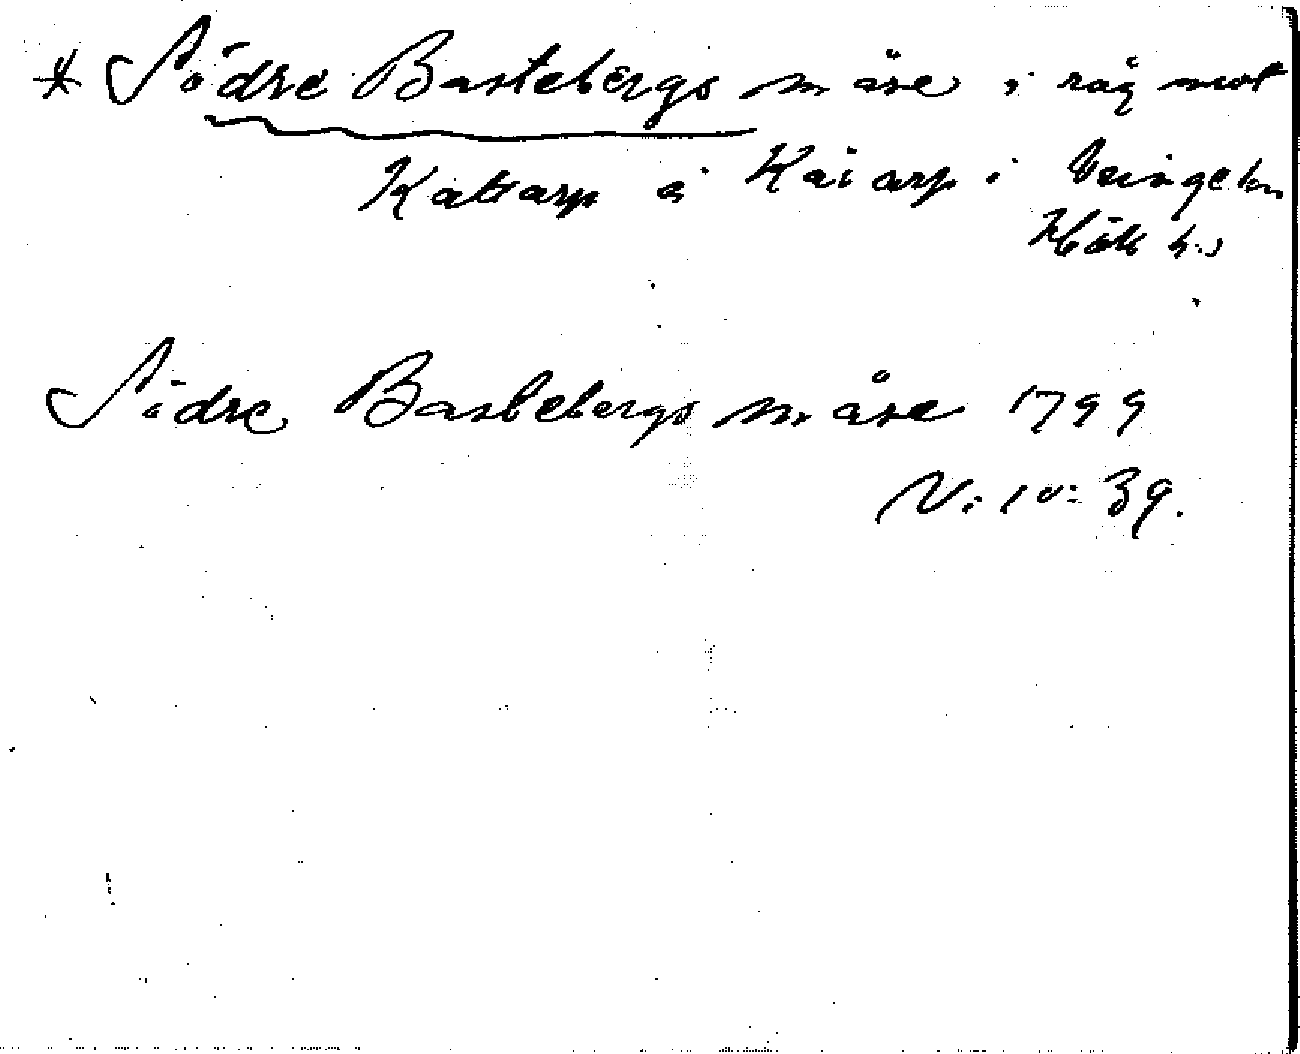 * Södre Bastebergs måse i råg mot
Kattarp å Kaiarp i Veinge sn
Höks h.
Södre Bastebergs måse 1799
V: 10: 39.